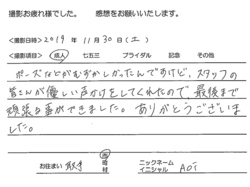 撮影お疲れ様でした。　感想をお願いいたします。
<撮影日時> 2019 年 11 月 30 日 (土)
<撮影項目> 成人 七五三 ブライダル 記念 その他
ポーズなどがむずかしかったんですけど、スタッフの
皆さんが優しい声かけをしてくれたので、最後まで
頑張る事ができました。ありがとうございま
した。
お住まい 市 区 町 村 ニックネーム イニシャル AOI